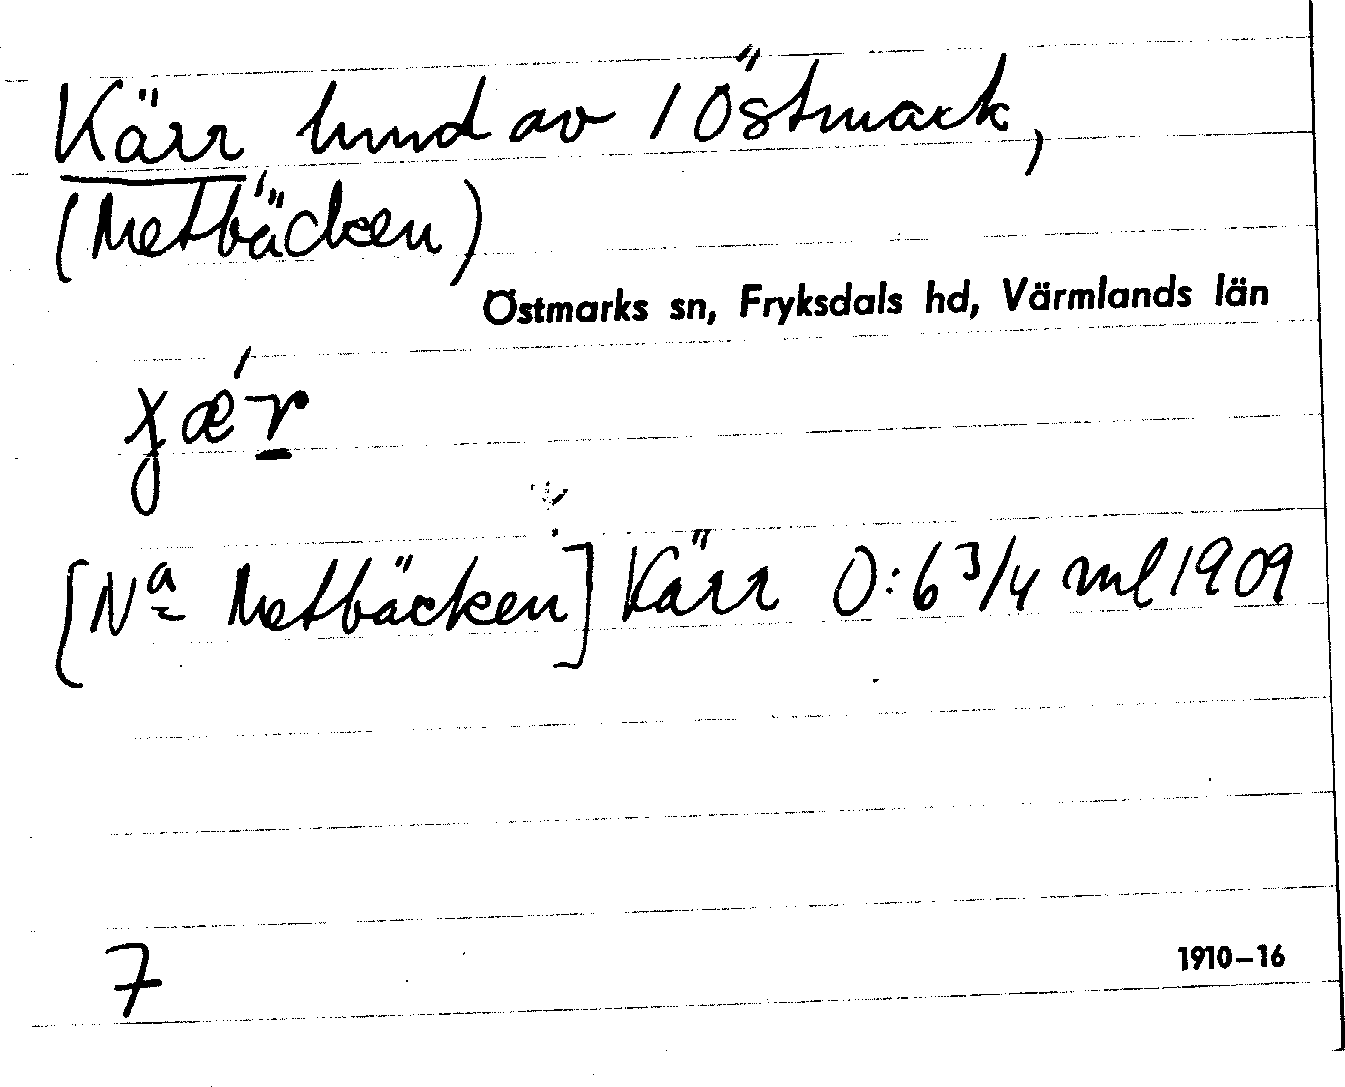 Kärr hmd av 1 Östmark,
(Metbäcken)
Östmarks sn, Fryksdals hd, Värmlands län
[Nª Metbäcken] Kärr 0:6 3/4 ml 1909
7
1910–16